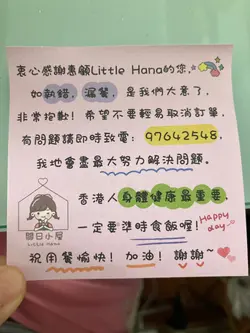 衷心感謝惠顧Little Hana的您,
如執錯,漏餐,是我們大意了,
非常抱歉!希望不要輕易取消訂單,
有問題請即時致電:97642548,
我地會盡最大努力解決問題。
香港人身體健康最重要,
一定要準時食飯喔!
Happy day~
日小屋
Little Hana
祝用餐愉快!加油!謝謝~